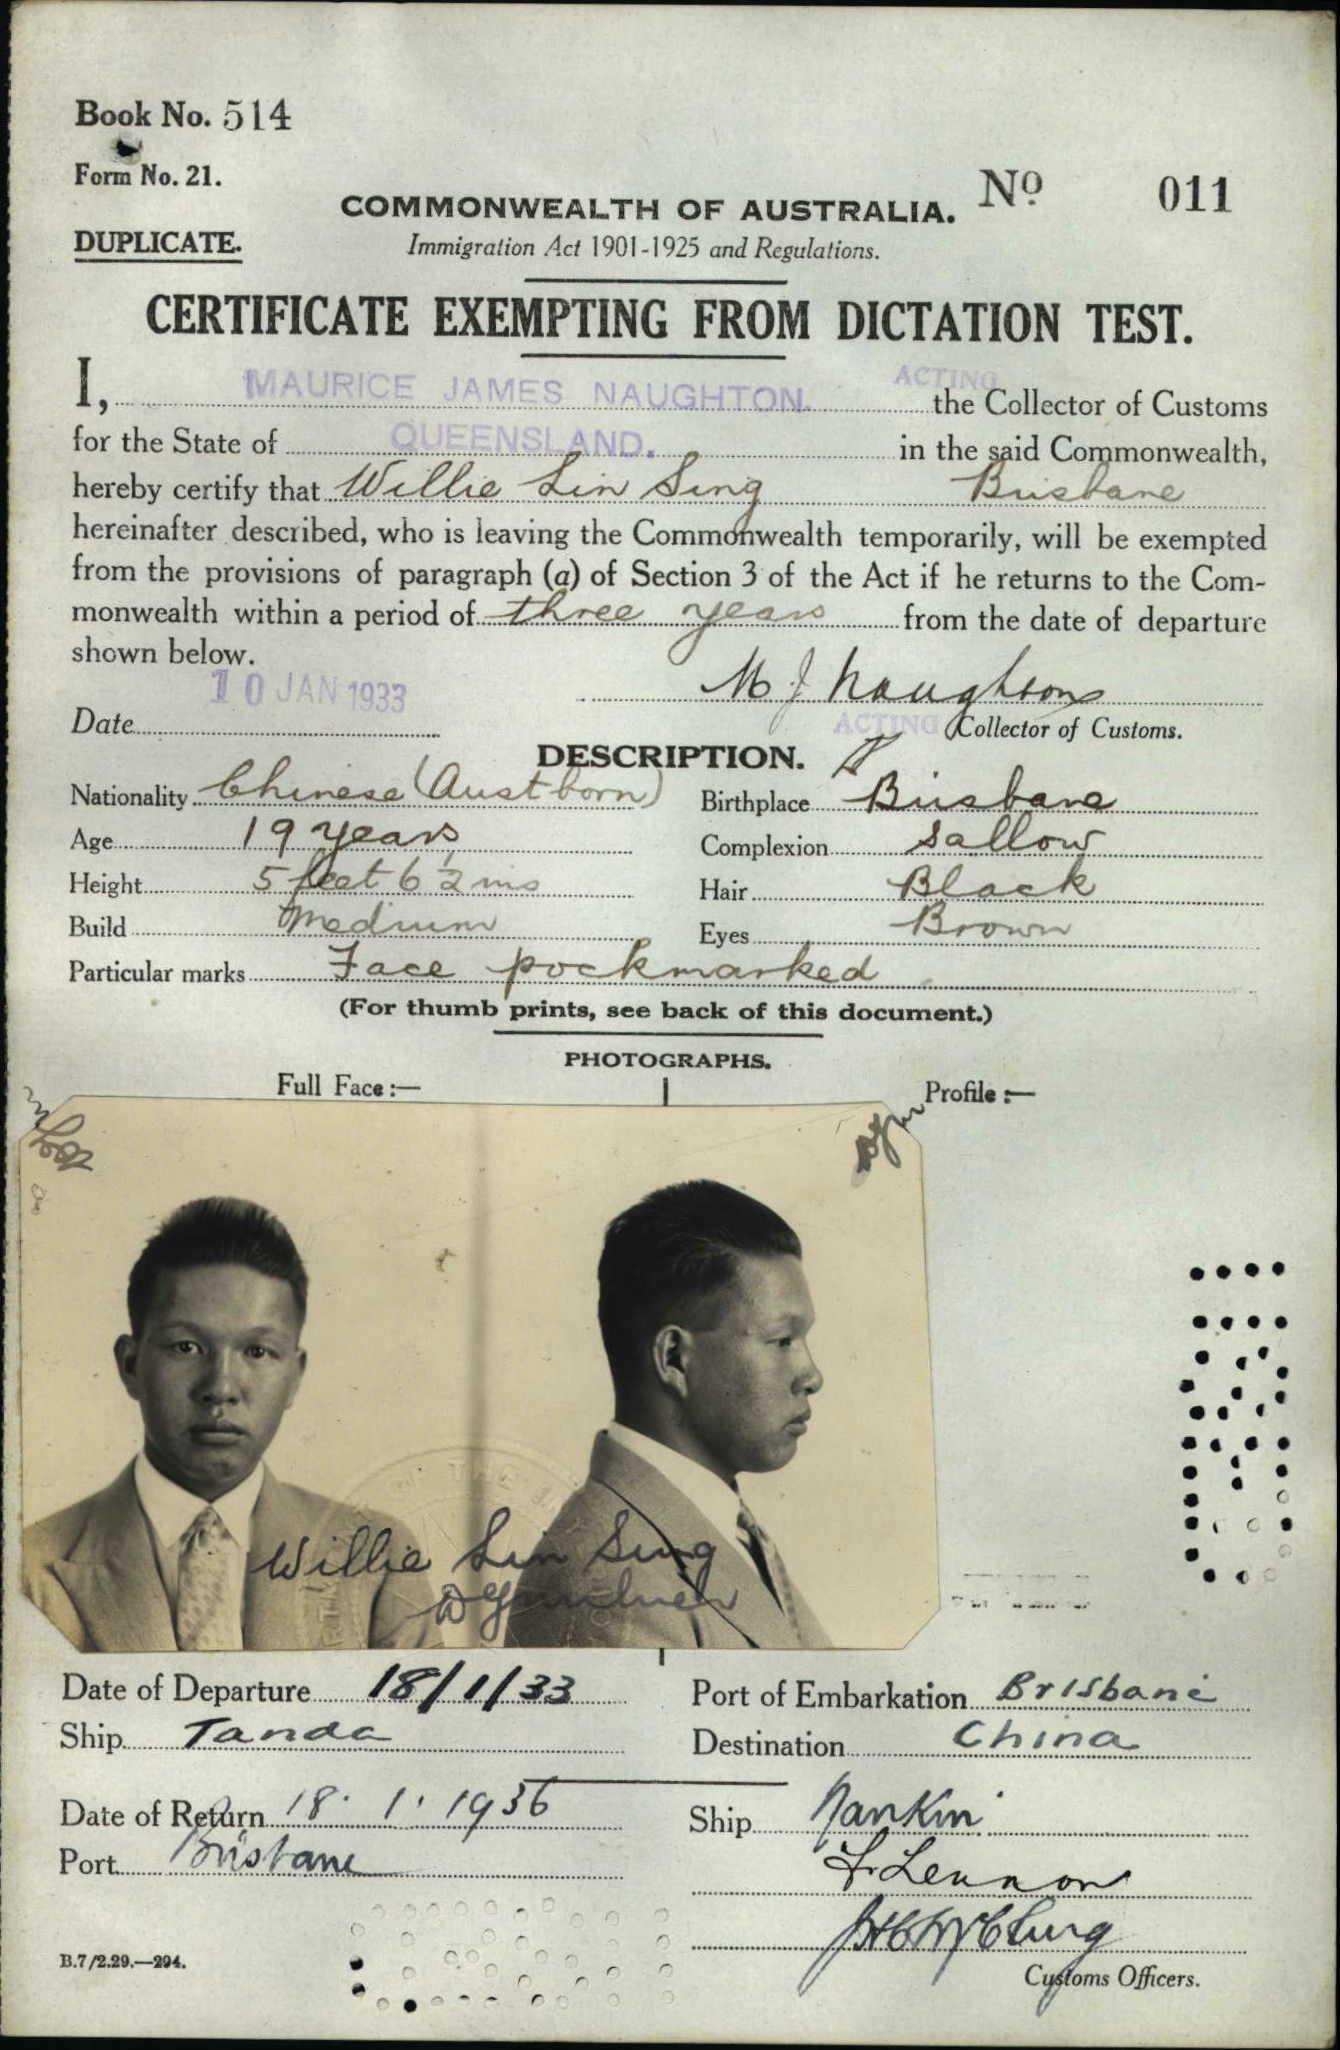 Book No. 514
Form No. 21.
No 011
COMMONWEALTH OF AUSTRALIA.
DUPLICATE.
Immigration Act 1901-1925 and Regulations.
CERTIFICATE EXEMPTING FROM DICTATION TEST.
I, MAURICE JAMES NAUGHTON. ACTING the Collector of Customs
for the State of QUEENSLAND. in the said Commonwealth,
hereby certify that Willie Lin Sing Brisbane
hereinafter described, who is leaving the Commonwealth temporarily, will be exempted
from the provisions of paragraph (a) of Section 3 of the Act if he returns to the Com-
monwealth within a period of three years from the date of departure
shown below.
M J Naughton
Date 10 JAN 1933
ACTING Collector of Customs.
DESCRIPTION.
Nationality Chinese (Aust born) Birthplace Brisbane
Age 19 years Complexion Sallow
Height 5 feet 6 1/2 ins Hair Black
Build Medium Eyes Brown
Particular marks Face pockmarked
(For thumb prints, see back of this document.)
PHOTOGRAPHS.
Full Face :— Profile :—
Willie Lin Sing
Date of Departure 18/1/33 Port of Embarkation Brisbane
Ship Tanda Destination China
Date of Return 18. 1. 1936 Ship Nankin
Port Brisbane
F. Lennon
B.7/2.29.—294.
Customs Officers.